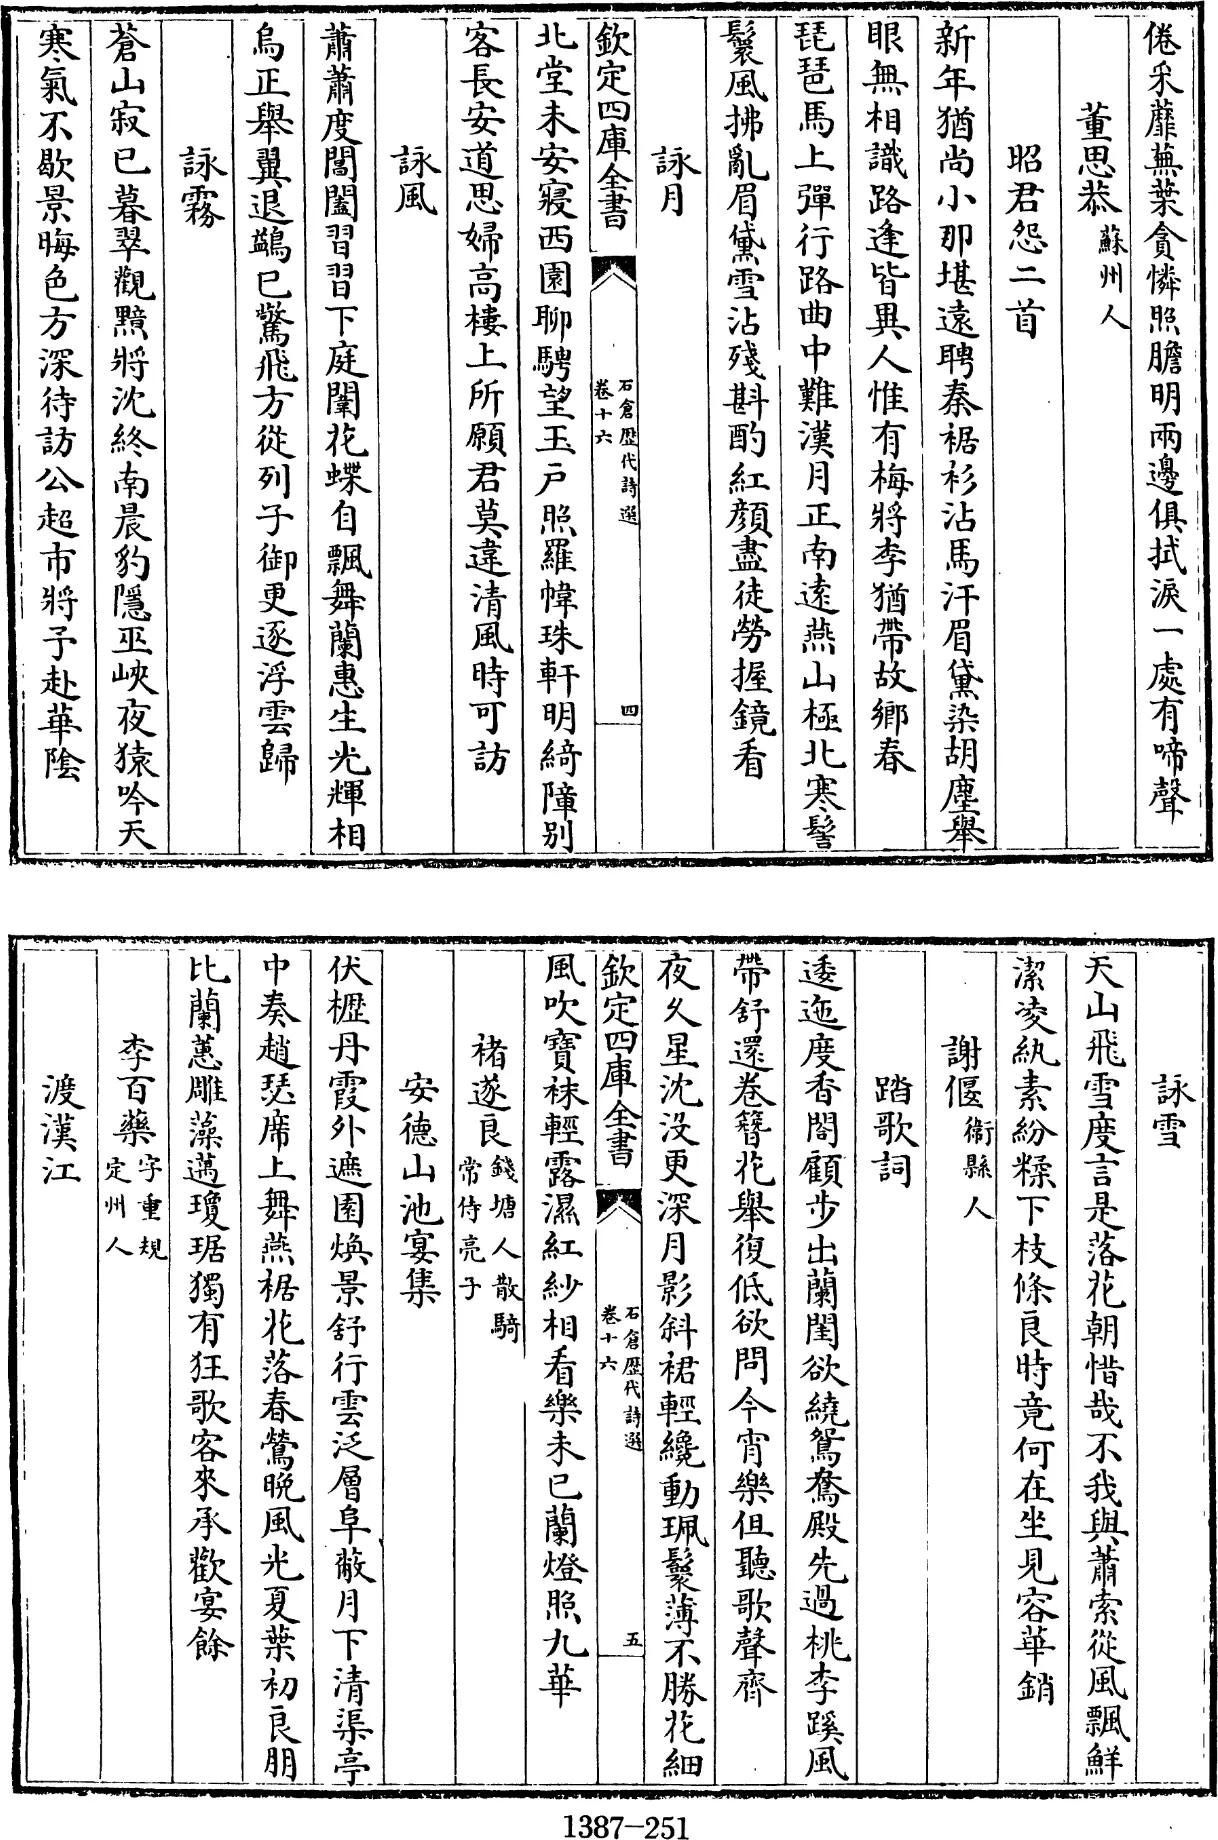 倦采蘼蕪葉貪憐照膽明兩邊俱拭淚一處有啼聲
董思恭蘇州人
昭君怨二首
新年猶尚小那堪遠聘秦裾衫沾馬汗眉黛染胡塵舉
眼無相識路逢皆異人惟有梅將李猶帶故鄉春
琵琶馬上彈行路曲中難漢月正南逺燕山極北寒髻
鬟風拂亂眉黛雪沾殘斟酌紅顔盡徒勞握鏡看
詠月
欽定四庫全書
石倉歷代詩選
卷十六
四
北堂未安寢西園聊騁望玉戸照羅幃珠軒明綺障别
客長安道思婦高樓上所願君莫違清風時可訪
詠風
蕭蕭度閶闔習習下庭闈花蝶自飄舞蘭蕙生光輝相
烏正舉翼退鷁已驚飛方從列子御更逐浮雲歸
詠霧
蒼山寂已暮翠觀黯將沈終南晨豹隱巫峽夜猿吟天
寒氣不歇景晦色方深待訪公超市將予赴華陰
詠雪
天山飛雪度言是落花朝惜哉不我與蕭索從風飄鮮
潔凌紈素紛糅下枝條良時竟何在坐見容華銷
謝偃衞縣人
踏歌詞
逶迤度香閣顧步出蘭閨欲繞鴛鴦殿先過桃李蹊風
帶舒還卷簪花舉復低欲問今宵樂但聽歌聲齊
夜久星沈没更深月影斜裙輕纔動珮鬟薄不勝花細
欽定四庫全書
石倉歷代詩選
卷十六
五
風吹寳袜輕露濕紅紗相看樂未已蘭燈照九華
褚遂良錢塘人散騎
常侍亮子
安德山池宴集
伏櫪丹霞外遮園焕景舒行雲泛層阜蔽月下清渠亭
中奏趙瑟席上舞燕裾花落春鶯晩風光夏葉初良朋
比蘭蕙雕藻邁瓊琚獨有狂歌客來承歡宴餘
李百藥字重規
定州人
渡漢江
1387-251